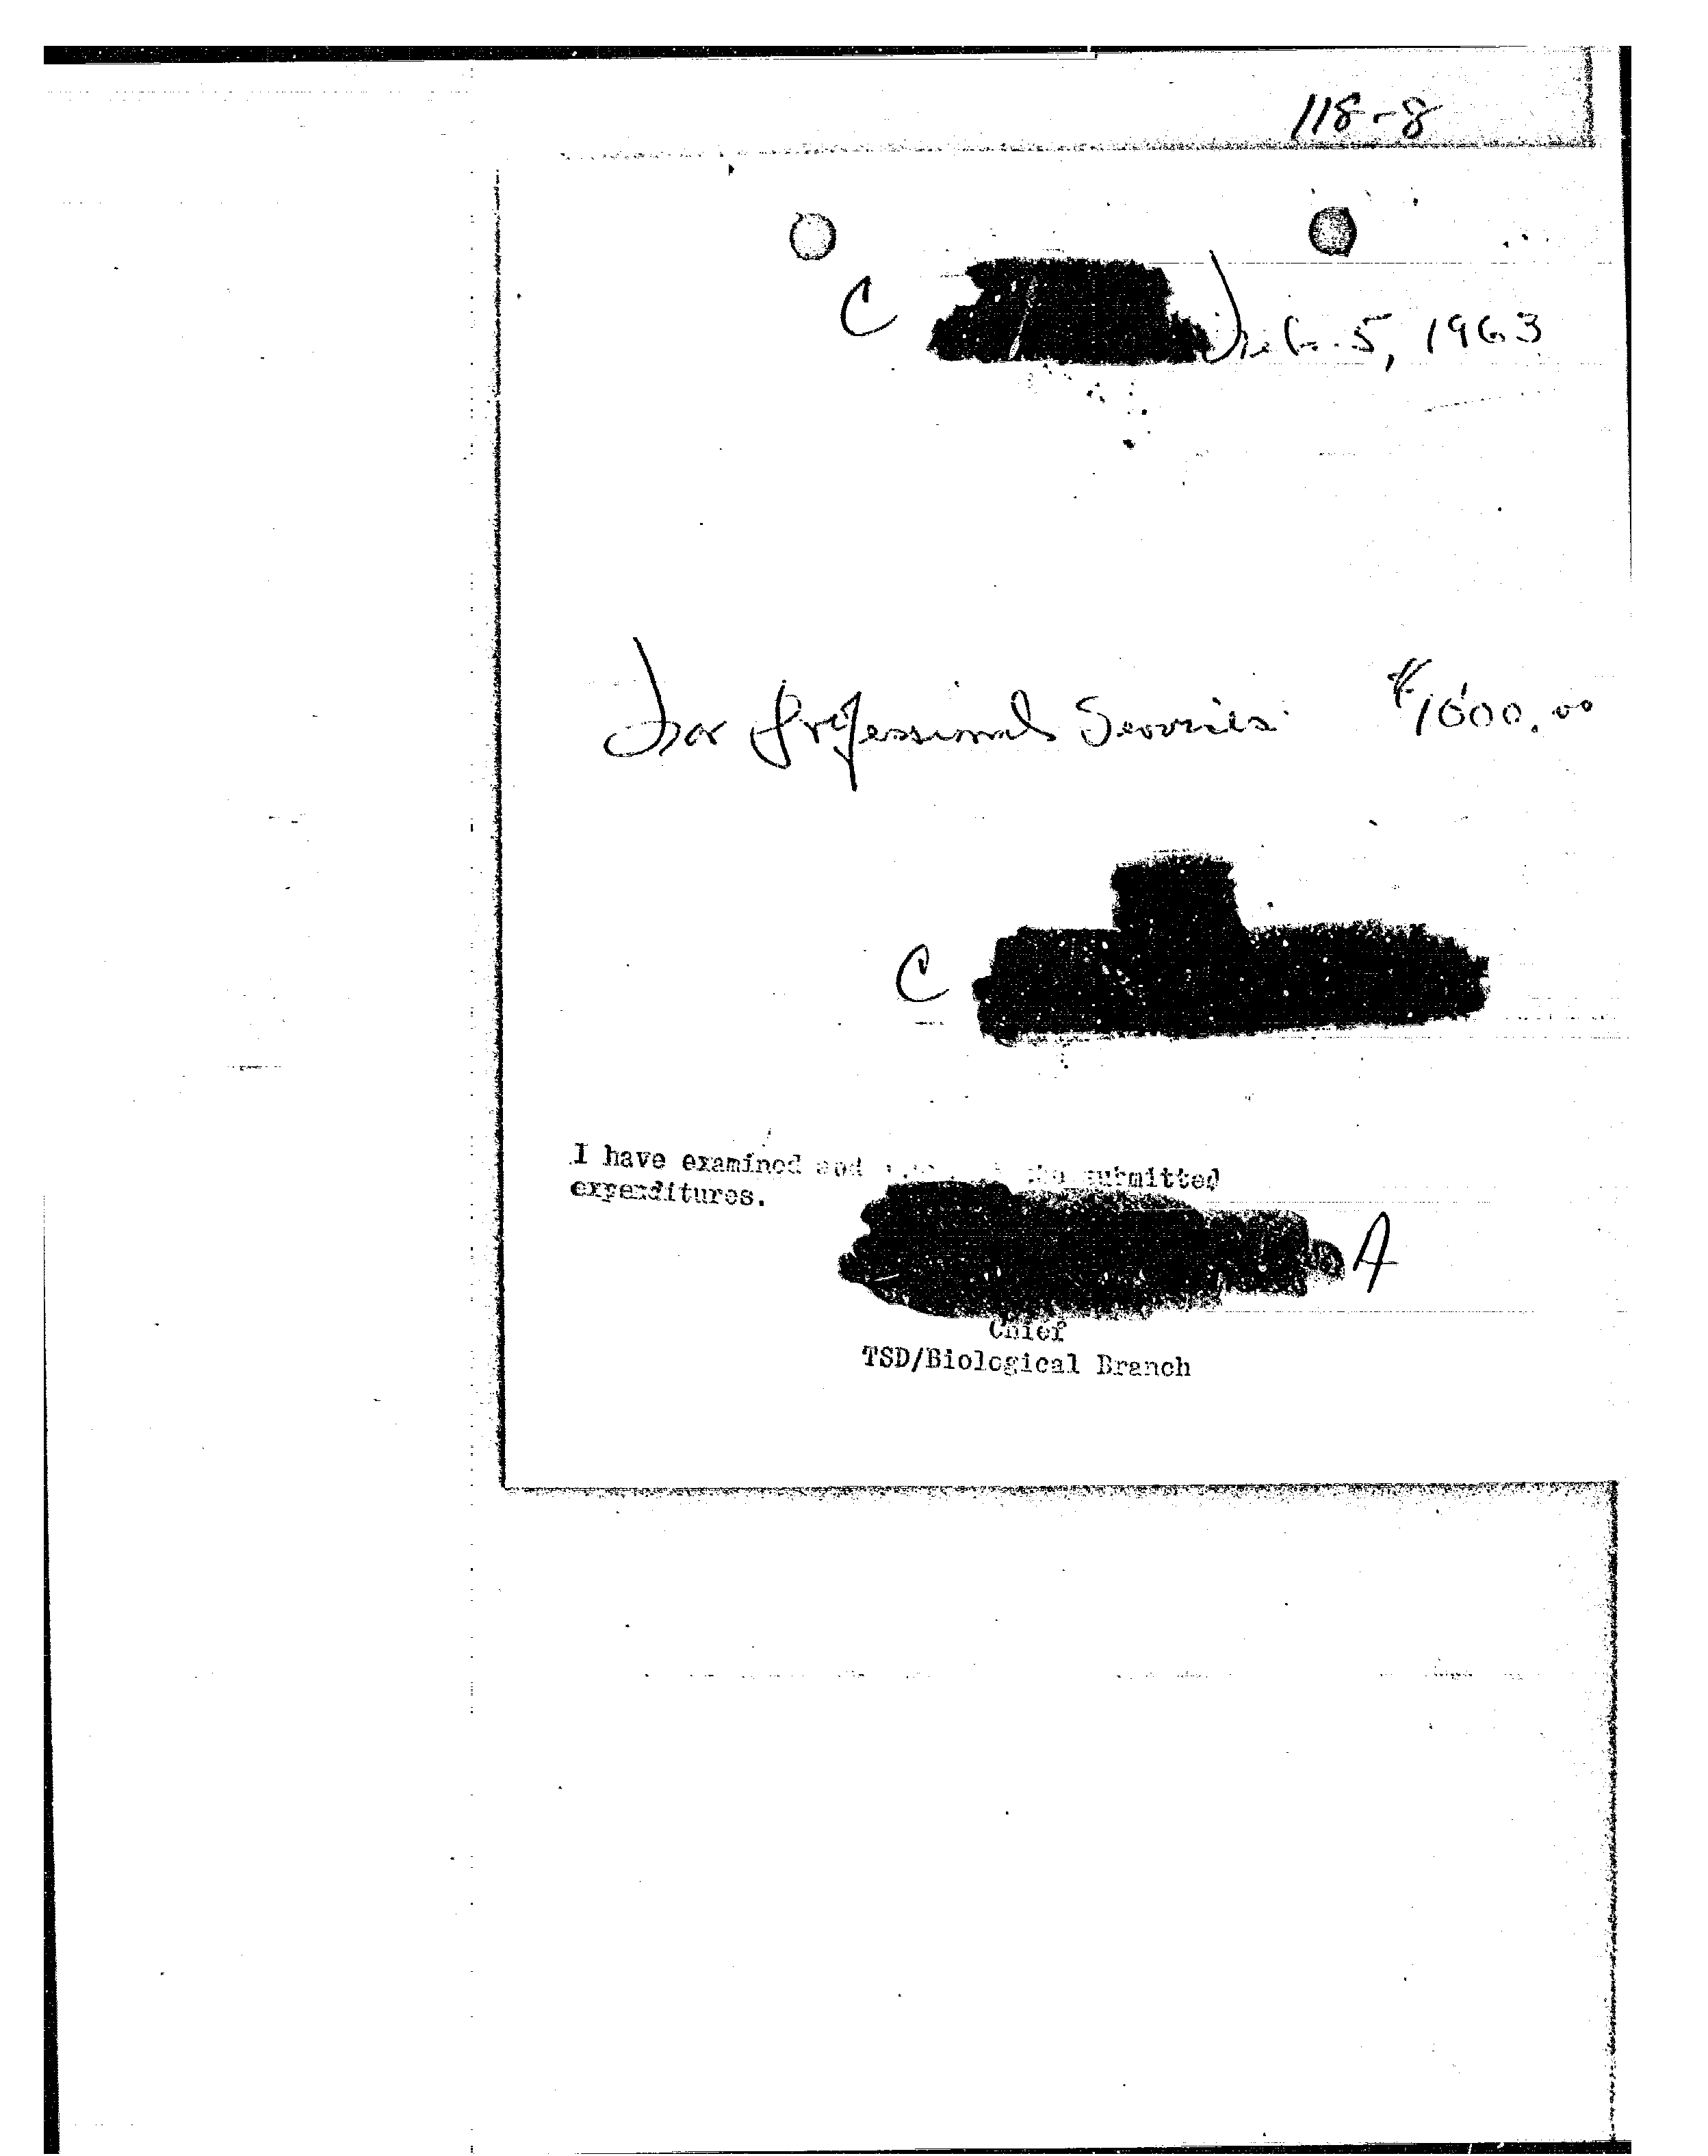 118-8
C Feb. 5, 1963
For Professional Services $1000.00
C
I have examined and the submitted
expenditures.
A
Chief
TSD/Biological Branch